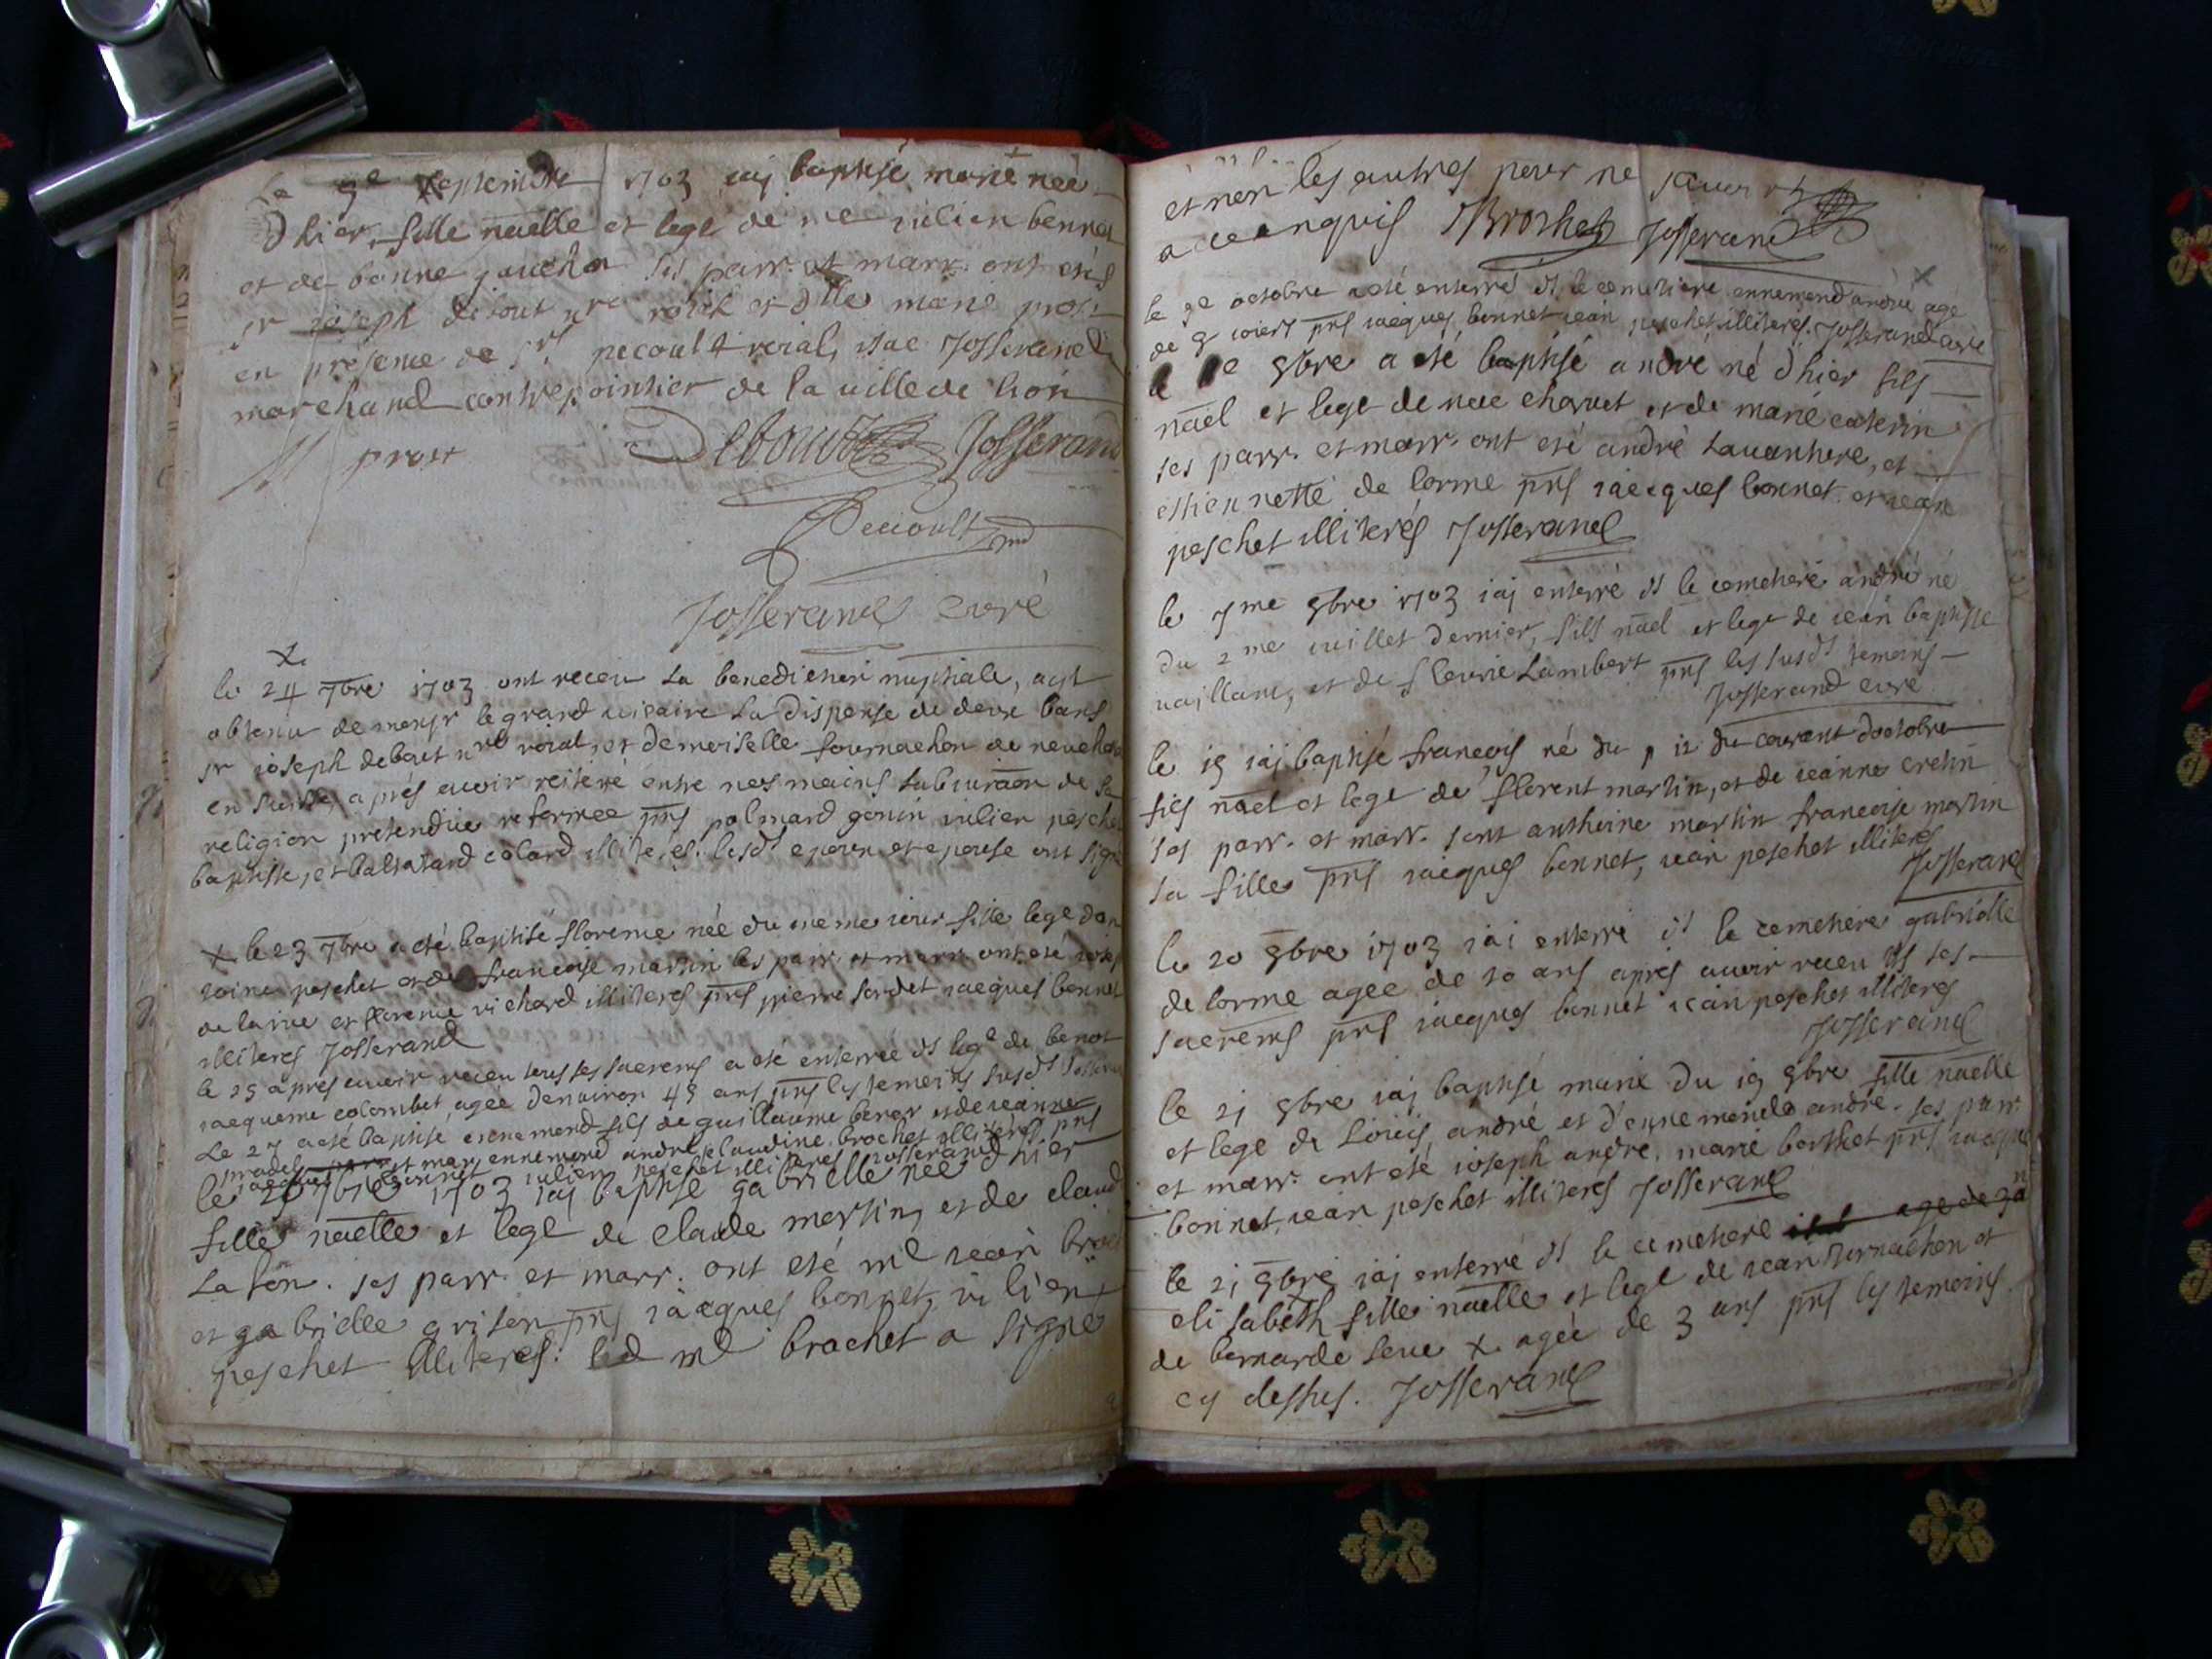 septembre 1703 iaj baptisé marie neé
d'hier, fille naelle et lege de me iulien bennet
et de bonne ses parr. et marr. ont etés
sr ioseph debout nre roial et dlle marie prost
en présence de srs pecoult roial, isac Josserand
marchand contrepointier de la ville de lion
M prost Debout Josserand
Pecoult
Josserand curé
le 24 7bre 1703 ont receu la benediction nuptiale, aijt
obtenu de monsr le grand vicaire la dispense de deux bans
sr ioseph debout nre roial, et demoiselle fournachon de
en suisse, aprés avoir reiteré entre nos mains de sa
religion prétendüe reformée pns genin iulien peschet
baptiste, et colard illiterés. lesds epoux et epouse ont signé
x le 23 7bre a eté baptisé florence née du meme iour fille lege dan
toine peschet et de francoise martin les parr. et marr. ont eté
de larue et florence richard illiteres pns pierre sordet iacques bonnet
illiteres Josserand
le 25 apres avoir receu tous ses sacrems a eté enterrée ds de benot
iaequeme colombet, agée denviron 45 ans pns les temoins susds
Le 27 a eté baptisé ennemond fils de guillaume benot et de ieanne
et marr. ennemond andré, claudine brochet illiteres pns
iacques bonnet iulien peschet illiteres Josserand
le 7bre 1703 iaj baptisé gabrielle née d'hier
fille naelle et lege de claude martin, et de claud
lafon. ses parr. et marr. ont eté me iean
et gabrielle grison pns iacques bonnet, iulien
peschet illiteres. led me brochet a signé
et non les autres pour ne scavoir
a ce enquis Brochet Josserand
le 9e octobre a eté enterré ds le cemetiere ennemond andré agé
de 9 iours pns iacques bonnet iean peschet illiteres. Josserand curé
le 8bre a eté baptisé andré né d'hier fils
nael et lege de charvet et de marie caterin
ses parr. et marr. ont eté andré lavanture, et
estiennette de lorme pns iacques bonnet et iean
peschet illiterés Josserand
le 7me 8bre 1703 iaj enterré ds le cemetiere andré né
du 2me iuillet dernier, fils nael et lege de iean baptiste
vaillant, et de fleurie Lambert pns les susds temoins
Josserand curé
le 15 iaj baptisé francois né du 12 du courant doctobre
fils nael et lege de florent martin, et de ieanne cretin
ses parr. et marr. sont anthoine martin francoise martin
sa fille pns iacques bonnet, iean peschet illiteres
Josserand
le 20 8bre 1703 iai enterré ds le cemetiere gabrielle
delorme agee de 20 ans apres avoir receu ts ses
sacrems pns iacques bonnet iean peschet illiteres
Josserand
le 21 8bre iaj baptisé marie du 19 8bre fille naelle
et lege de Louis andré et d'ennemonde andre. ses parr.
et marr. ont eté ioseph andre, marie berthet pns iacques
bonnet, iean peschet illiteres Josserand
le 21 8bre iaj enterré ds le cemetiere agé de
elisabeth fille naelle et lege de iean fournachon et
de bernarde seve x agée de 3 ans pns les temoins
cy dessus. Josserand